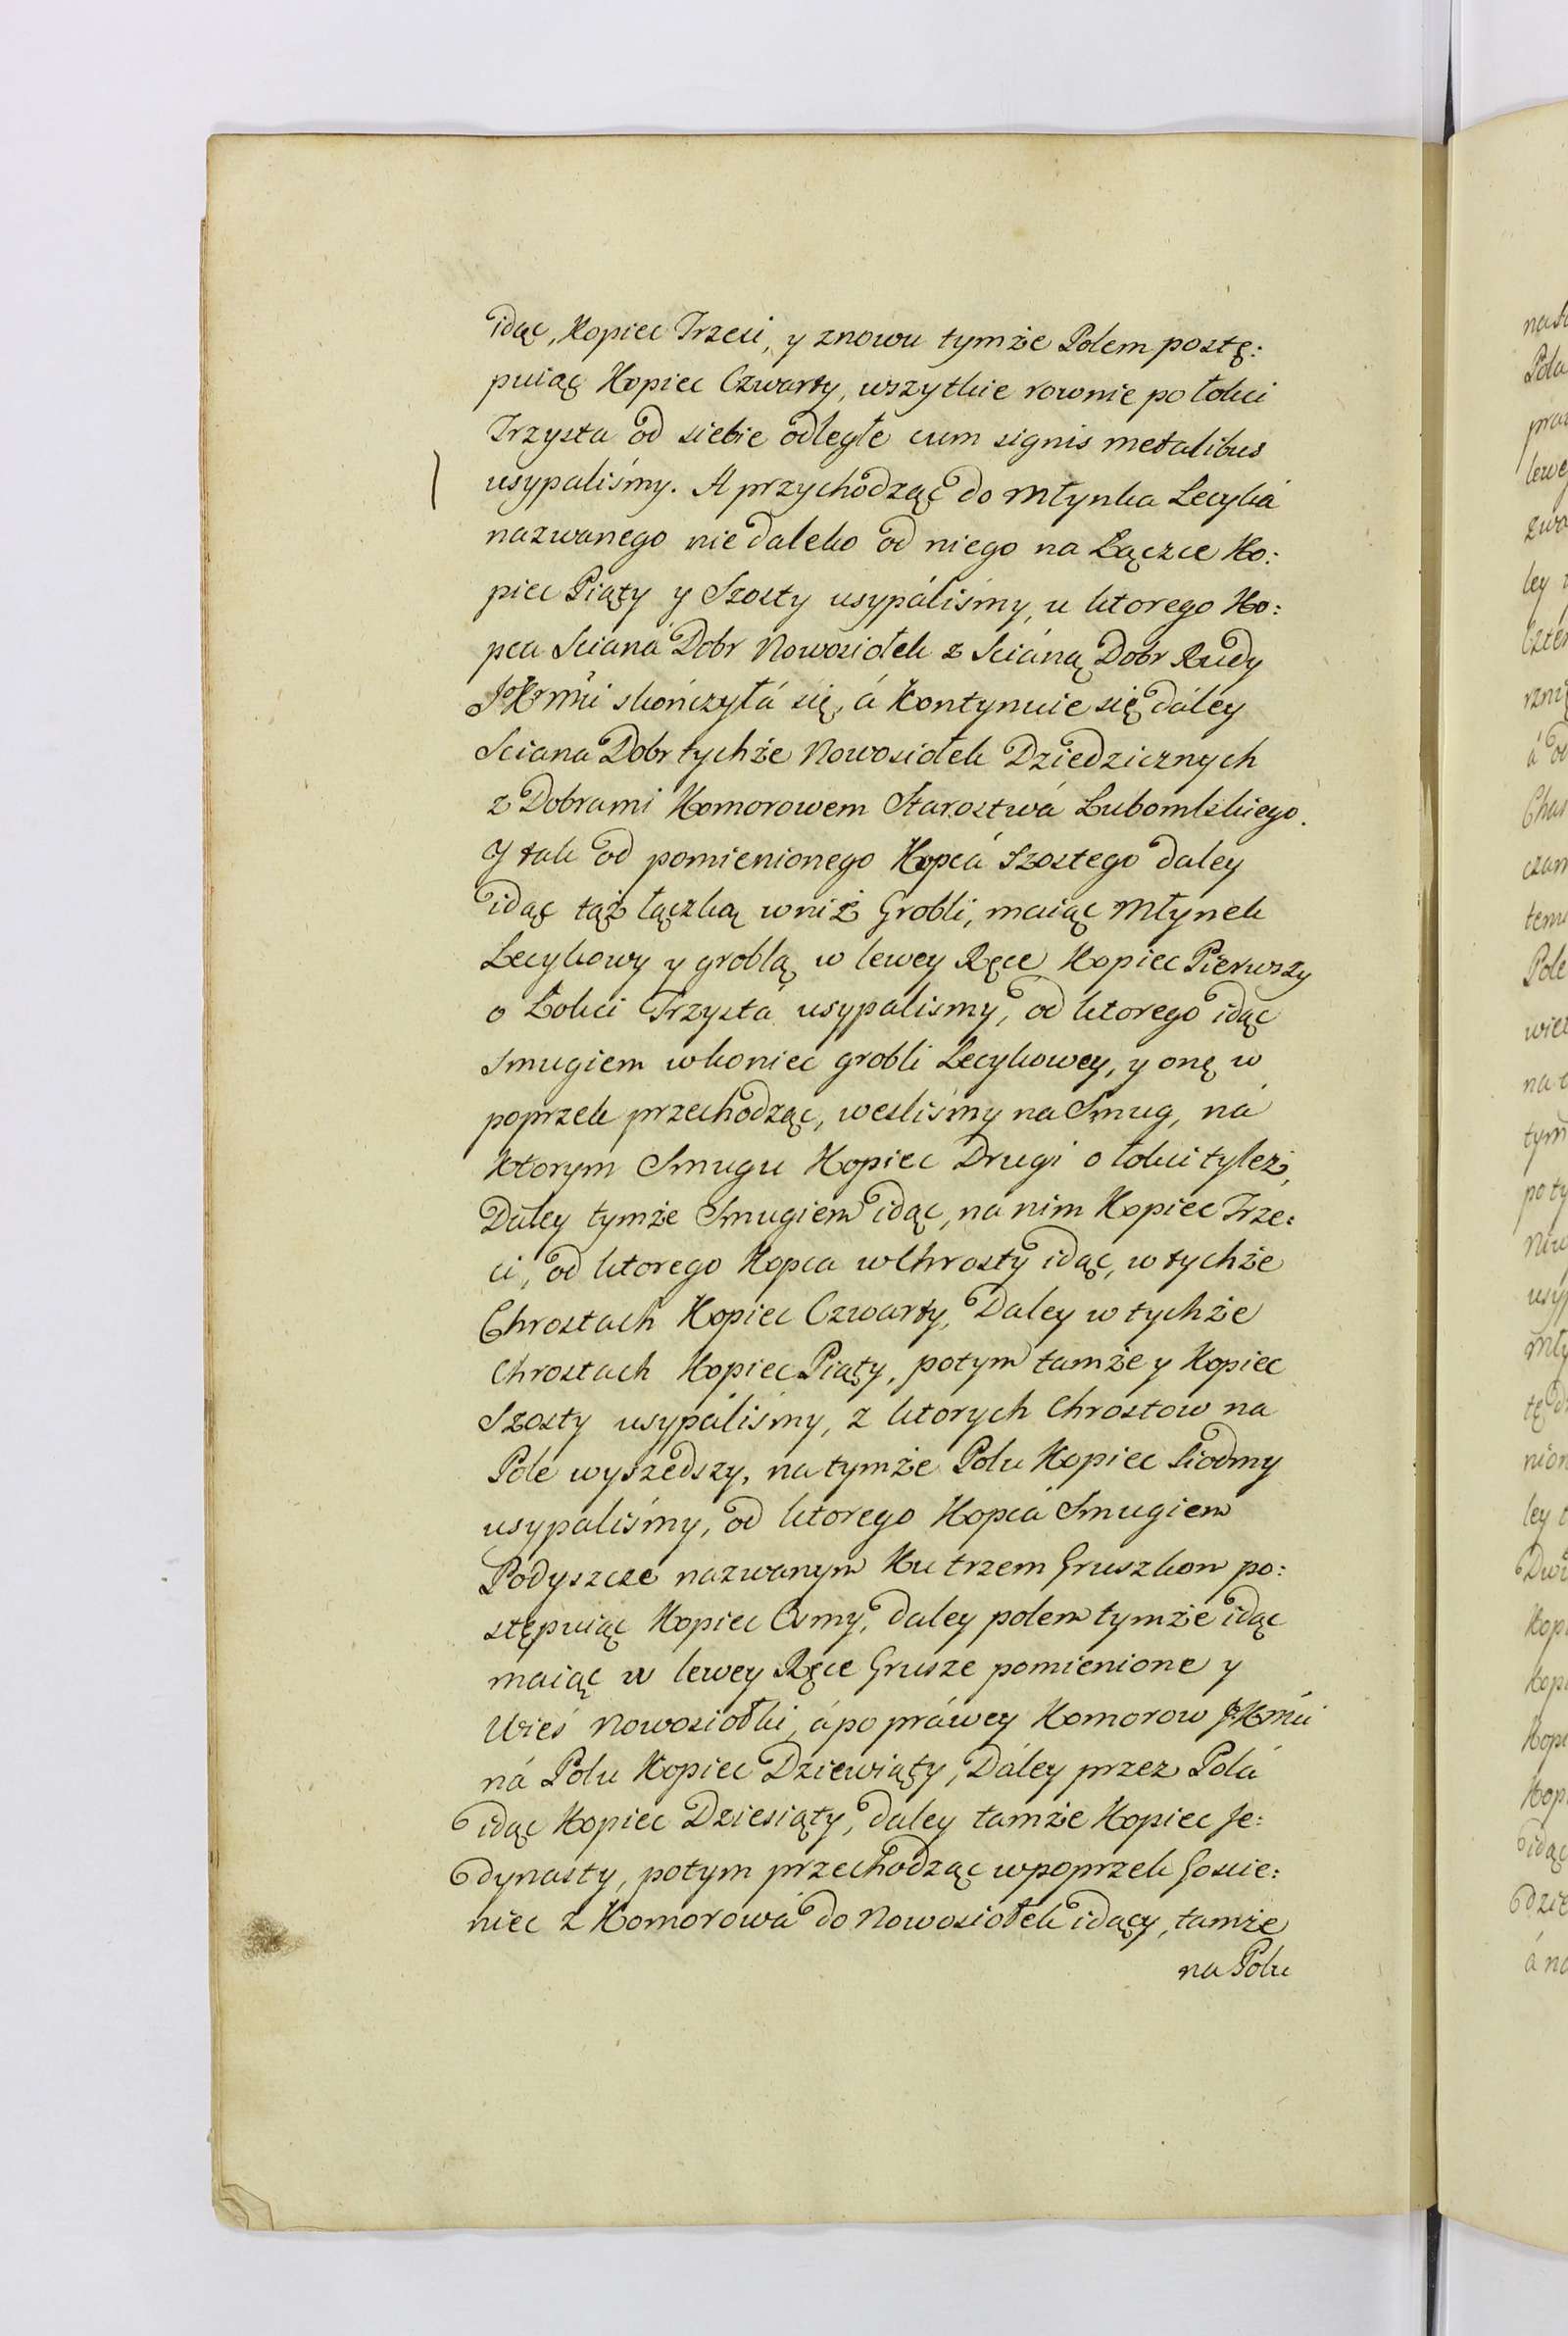 idąc, Kopiec Trzeci, y znowu tymże Polem postę:
puiąc Kopiec Czwarty, wszytkie rownie po łokci
Trzysta od siebie odległe cum signis metalibus
usypaliśmy. A przychodząc do Młynka Lecyká
nazwanego niedaleko od niego na Łączce Ko:
piec Piąty y Szosty usypáliśmy, u ktorego Ko:
pca Sciana Dobr Nowosiołek z Scianą Dobr Rudy
JKMśći skończyłá się, á Kontynuie się dáley
Sciana Dobr tychże Nowosiołek Dziedzicznych
z Dobrami Komorowem Starostwá Lubomlskiego.
Y tak od pomienionego Kopcá Szostego daley
idąc tąż łączką wniż Grobli, maiąc Młynek
Lecykowy y groblą w lewey Ręce Kopiec Pierwszy
o Łokci Trzysta usypalismy, od ktorego idąc
smugiem wkoniec grobli Lecykowey, y onę w
poprzek przechodząc, weśliśmy na Smug, ná
Ktorym Smugu Kopiec Drugi o łokci tyleż,
Dáley tymże Smugiem idąc, na nim Kopiec Trze:
ci, od ktorego Kopca wChrosty idąc, w tychże
Chrostach Kopiec Czwarty, Daley w tychże
Chrostach Kopiec Piąty, potym tamże y Kopiec
Szosty usypáliśmy, z ktorych Chrostow na
Pole wyszedszy, na tymże Polu Kopiec Siodmy
usypaliśmy, od ktorego Kopcá Smugiem
Podyszcze nazwanym Ku trzem Gruszkom po:
stępuiąc Kopiec Osmy, daley polem tymże idąc
maiąc w lewey Ręce Grusze pomienione y
Wieś Nowosiołki, á po práwey Komorow JKMśći
ná Polu Kopiec Dziewiąty, Dáley przez Polá
idąc Kopiec Dziesiąty, daley tamże Kopiec Je:
dynasty, potym przechodząc wpoprzek Goscie:
niec z Komorowá do Nowosiołek idący, tamże
na Polu